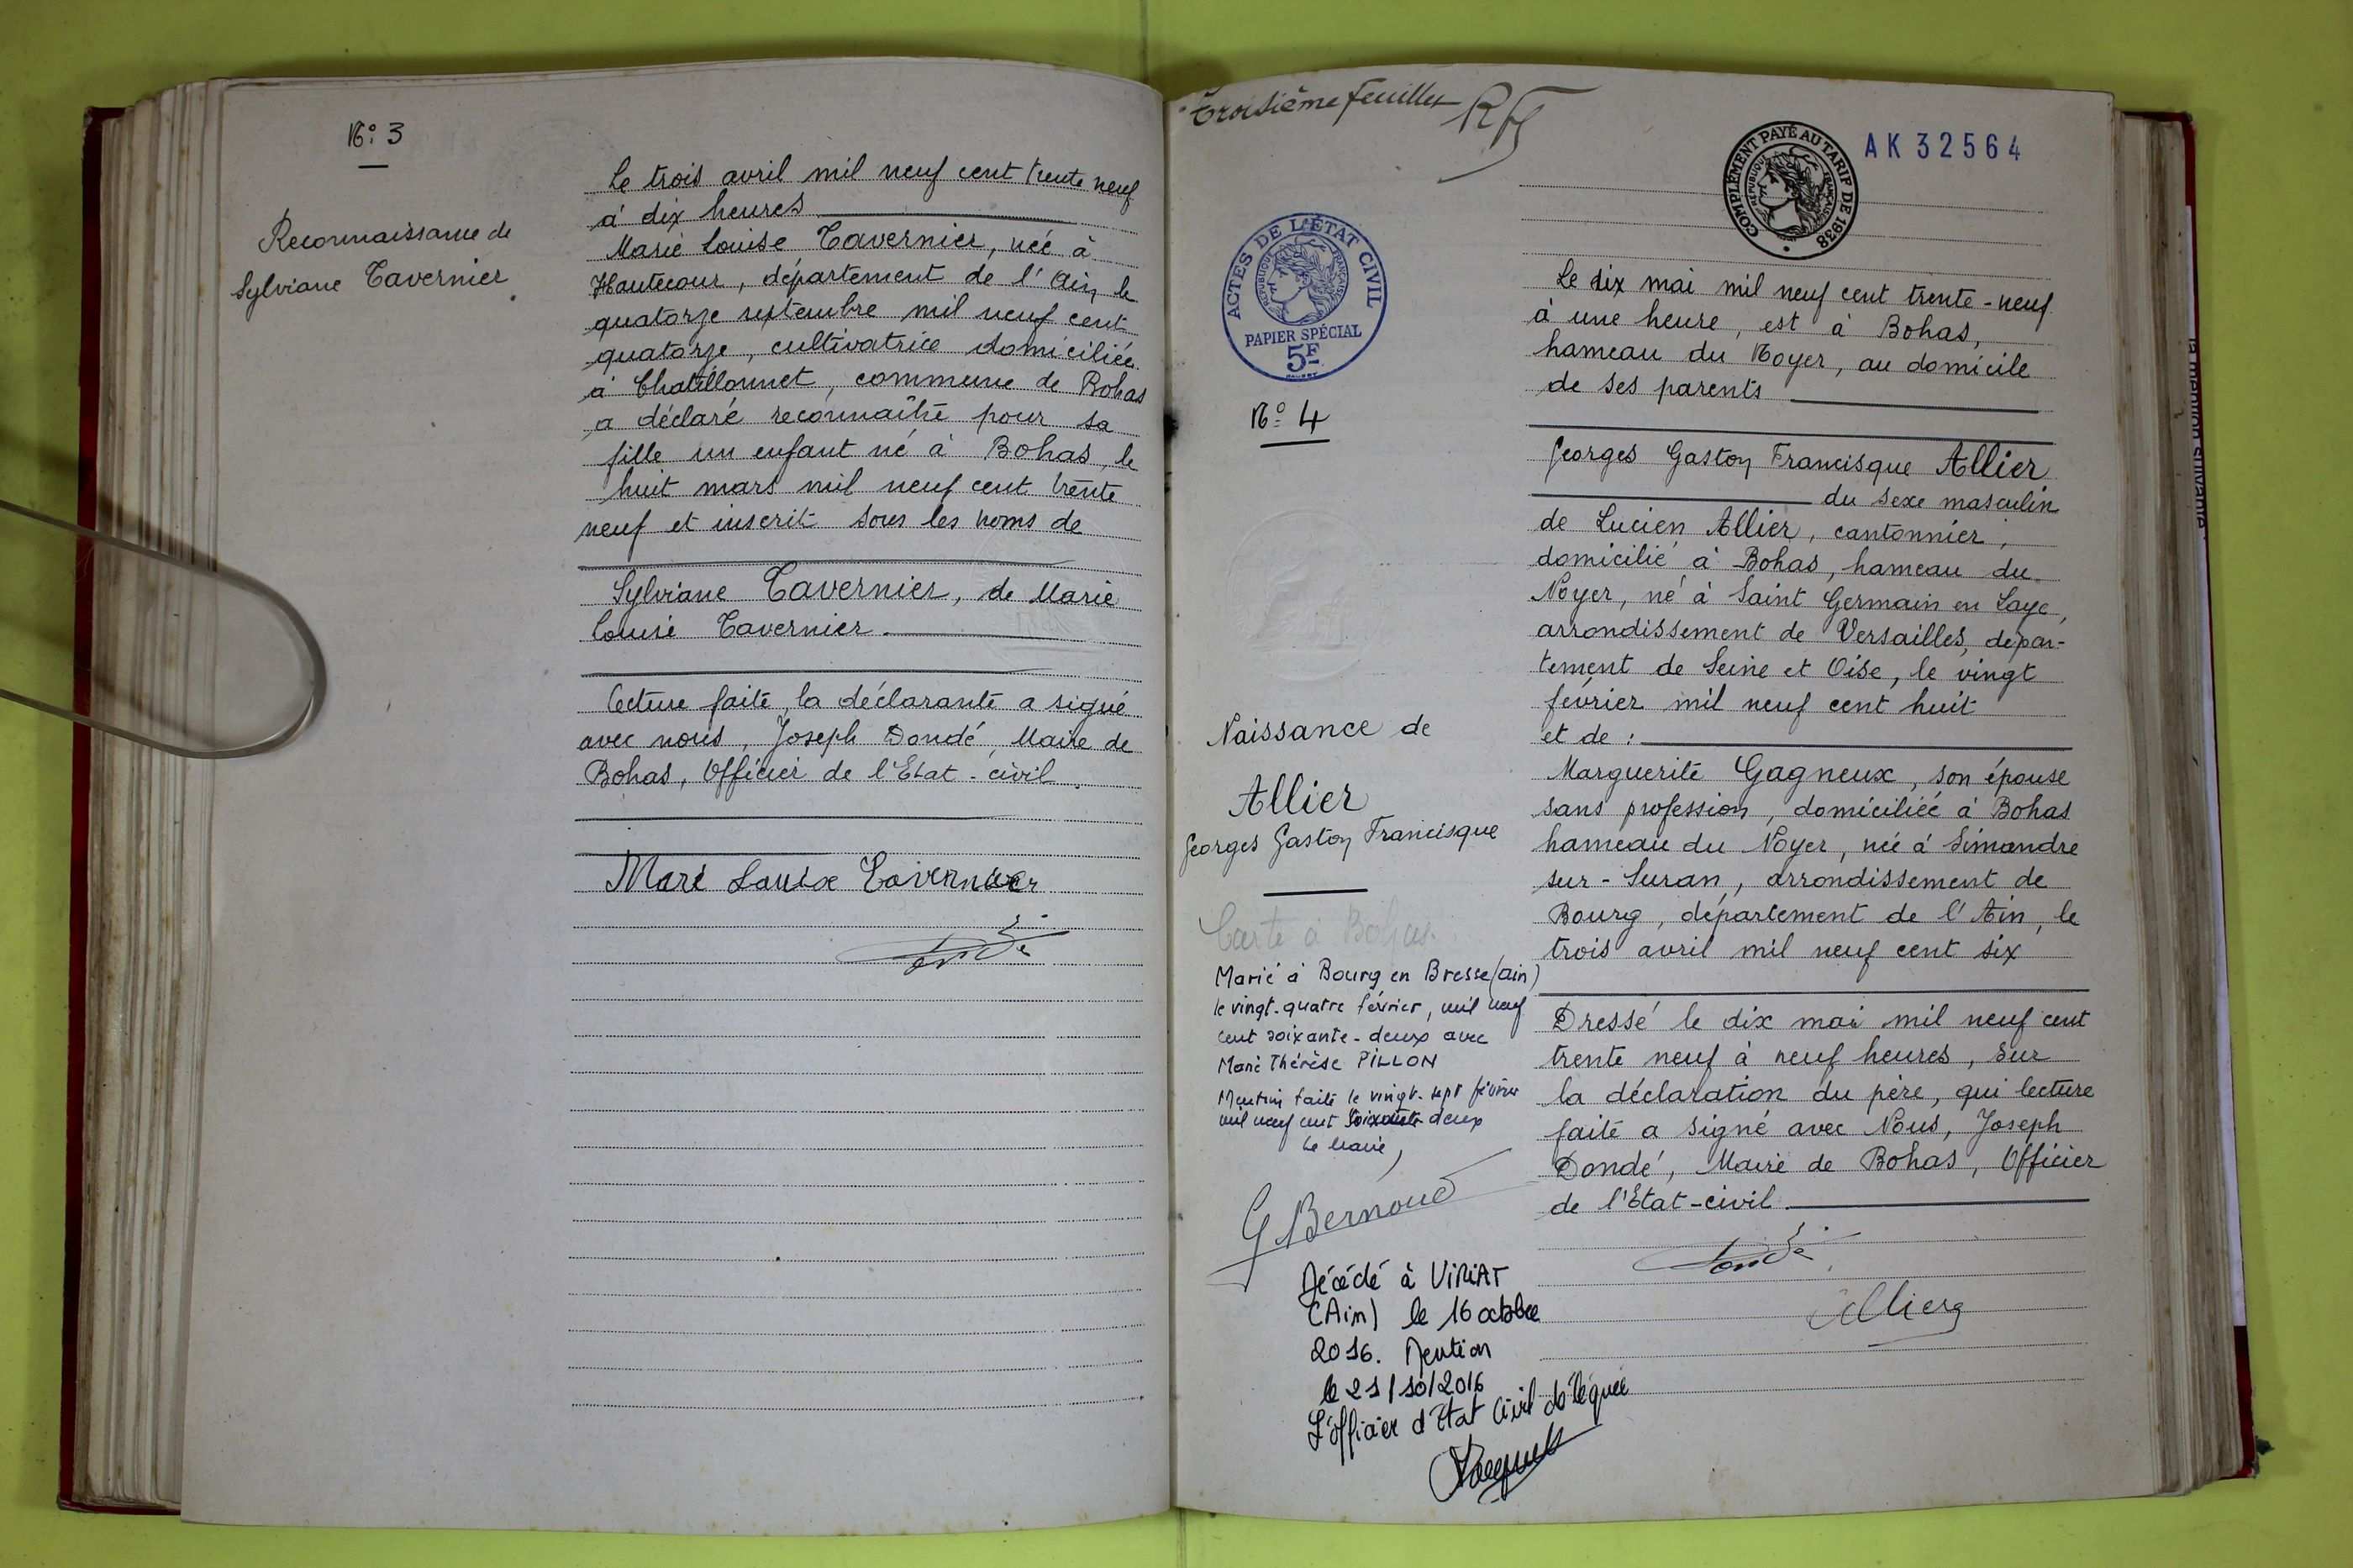 N° 3
Reconnaissance de
Sylviane Tavernier
Le trois avril mil neuf cent trente neuf
à dix heures
Marie Louise Tavernier, née à
Hautecour, département de l'Ain, le
quatorze septembre mil neuf cent
quatorze, cultivatrice domiciliée
à Chatillonnet, commune de Bohas
a déclaré reconnaître pour sa
fille un enfant né à Bohas, le
huit mars mil neuf cent trente
neuf et inscrit sous les noms de
Sylviane Tavernier, de Marie
Louise Tavernier.
Lecture faite, la déclarante a signé
avec nous, Joseph Dondé, Maire de
Bohas, Officier de l'Etat-civil.
Mari Louise Tavernier
Dondé
Troisième feuillet
COMPLÉMENT PAYÉ AU TARIF DE 1938
RÉPUBLIQUE FRANÇAISE
AK 32564
ACTES DE L'ÉTAT CIVIL
RÉPUBLIQUE FRANÇAISE
PAPIER SPÉCIAL
5F
N° 4
Naissance de
Allier
Georges Gaston Francisque
Carte à Bohas.
Marié à Bourg en Bresse (ain)
le vingt-quatre février, mil neuf
cent soixante-deux avec
Marie Thérèse PILLON
Mention faite le vingt-sept février
mil neuf cent soixante-deux
Le Maire,
G Bernoud
Décédé à VIRIAT
(Ain) le 16 octobre
2016. Mention
le 21/10/2016
L'officier d'Etat Civil déléguée
Le dix mai mil neuf cent trente-neuf
à une heure, est à Bohas,
hameau du Noyer, au domicile
de ses parents
Georges Gaston Francisque Allier
du sexe masculin
de Lucien Allier, cantonnier,
domicilié à Bohas, hameau du
Noyer, né à Saint Germain en Laye,
arrondissement de Versailles, dépar-
tement de Seine et Oise, le vingt
février mil neuf cent huit
et de :
Marguerite Gagneux, son épouse
sans profession, domiciliée à Bohas
hameau du Noyer, née à Simandre
sur-Suran, arrondissement de
Bourg, département de l'Ain, le
trois avril mil neuf cent six
Dressé le dix mai mil neuf cent
trente neuf à neuf heures, sur
la déclaration du père, qui lecture
faite a signé avec Nous, Joseph
Dondé, Maire de Bohas, Officier
de l'Etat-civil.
Dondé
Allier
la mention suivante